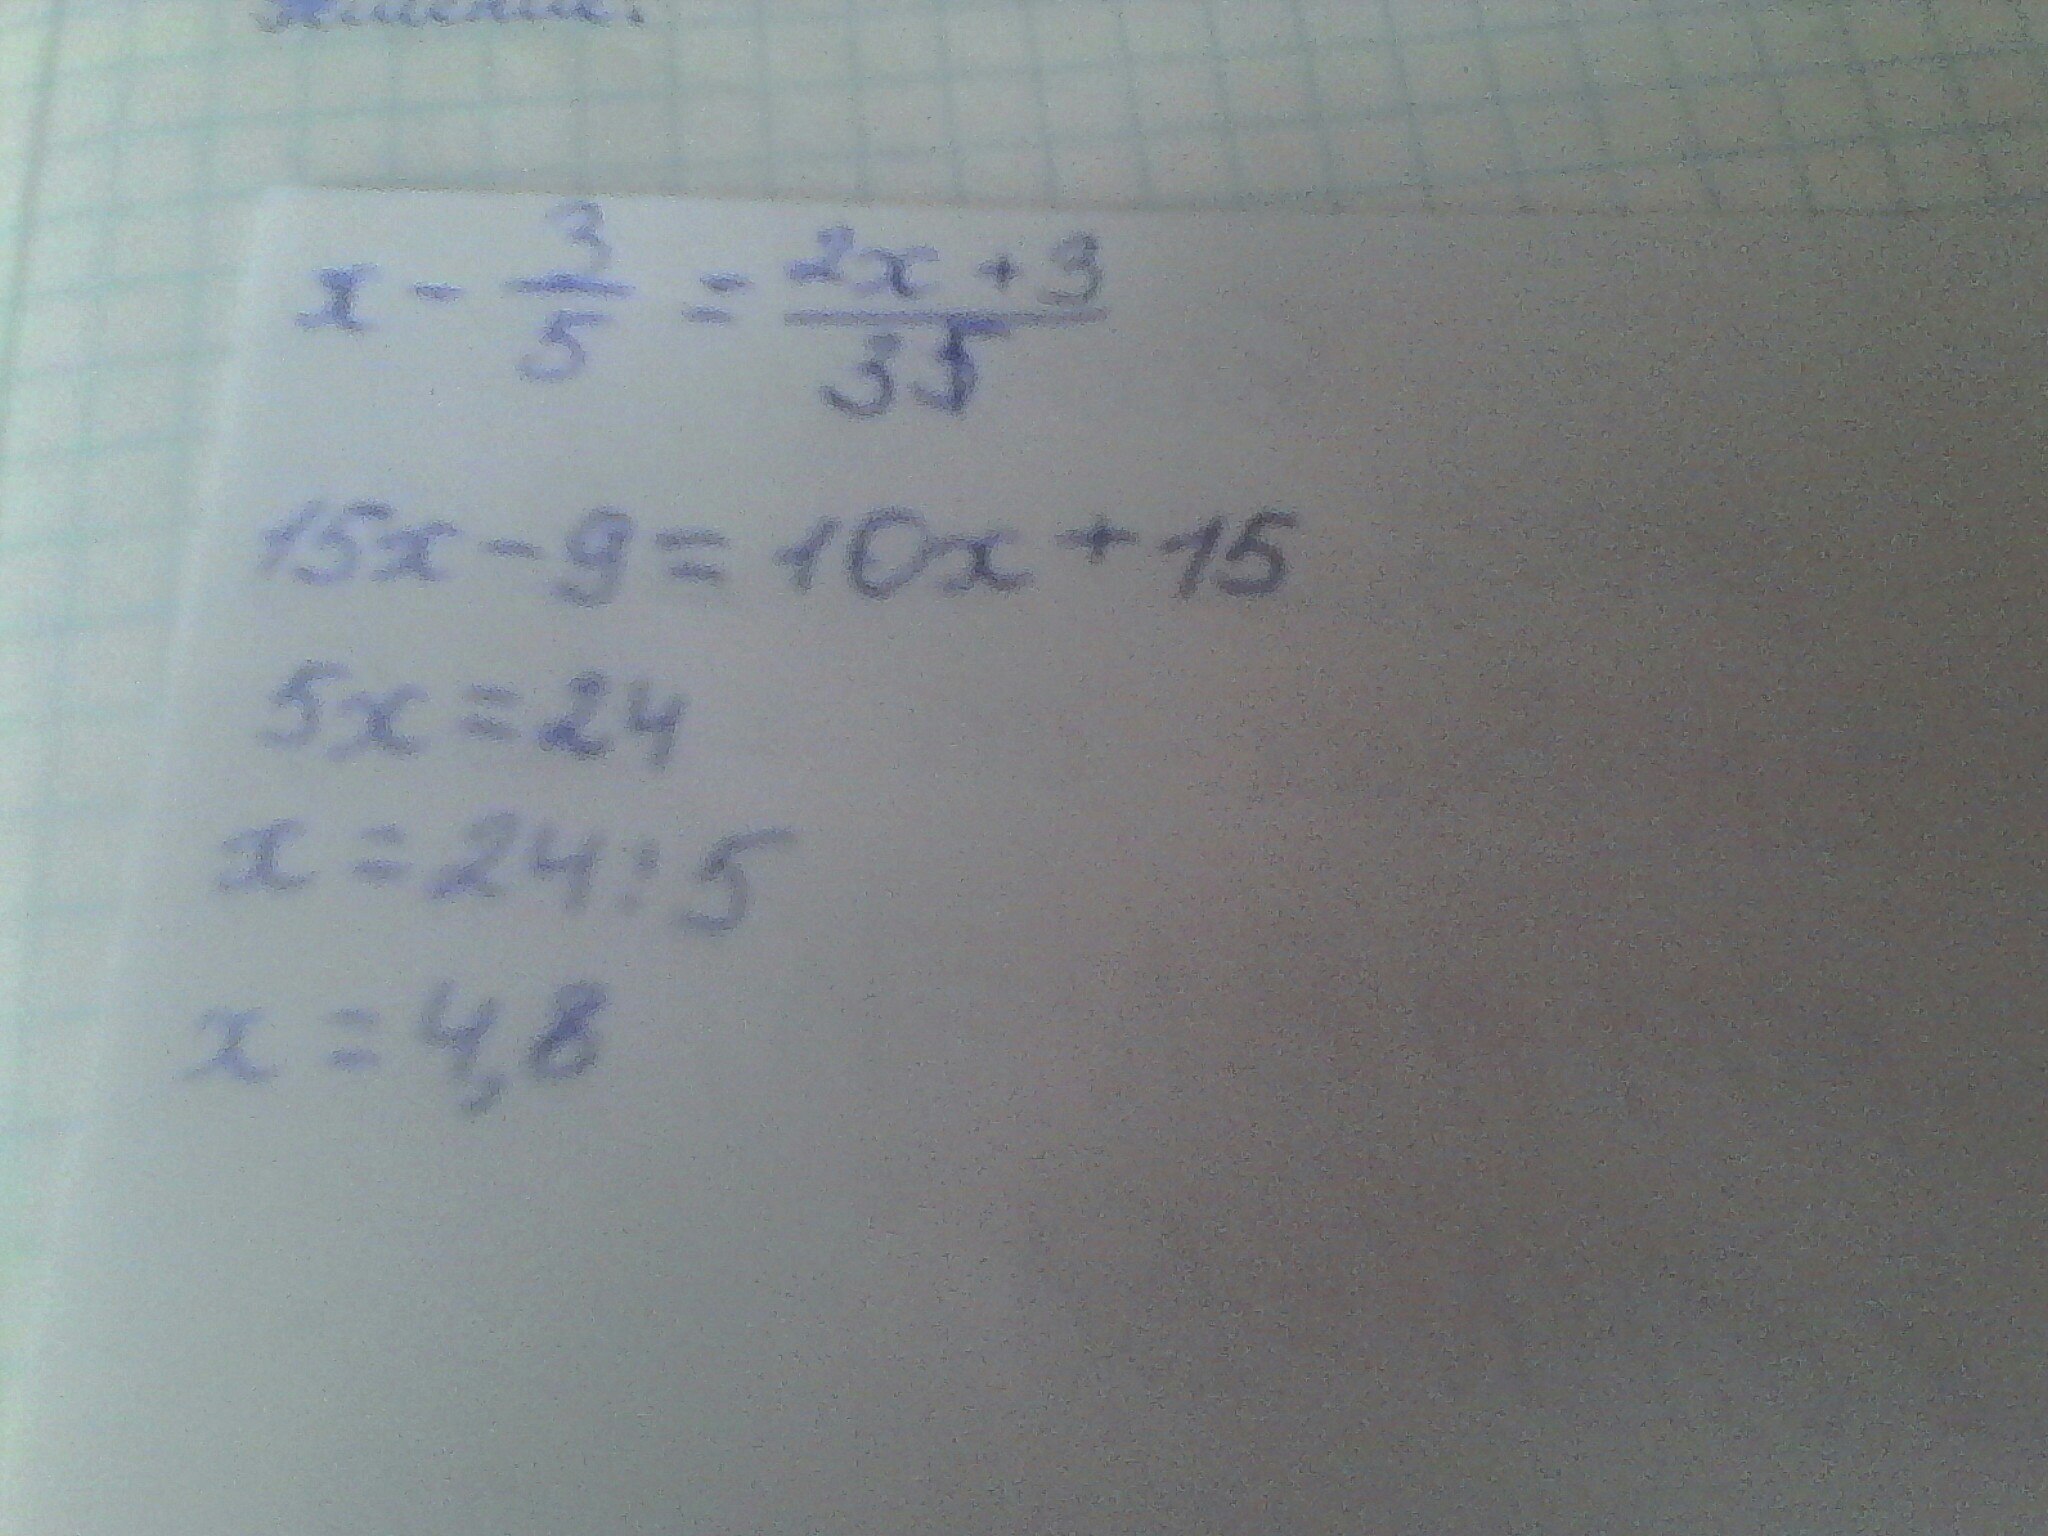 x - 3/5 = (2x + 3)/35
15x - 9 = 10x + 15
5x = 24
x = 24 : 5
x = 4,8